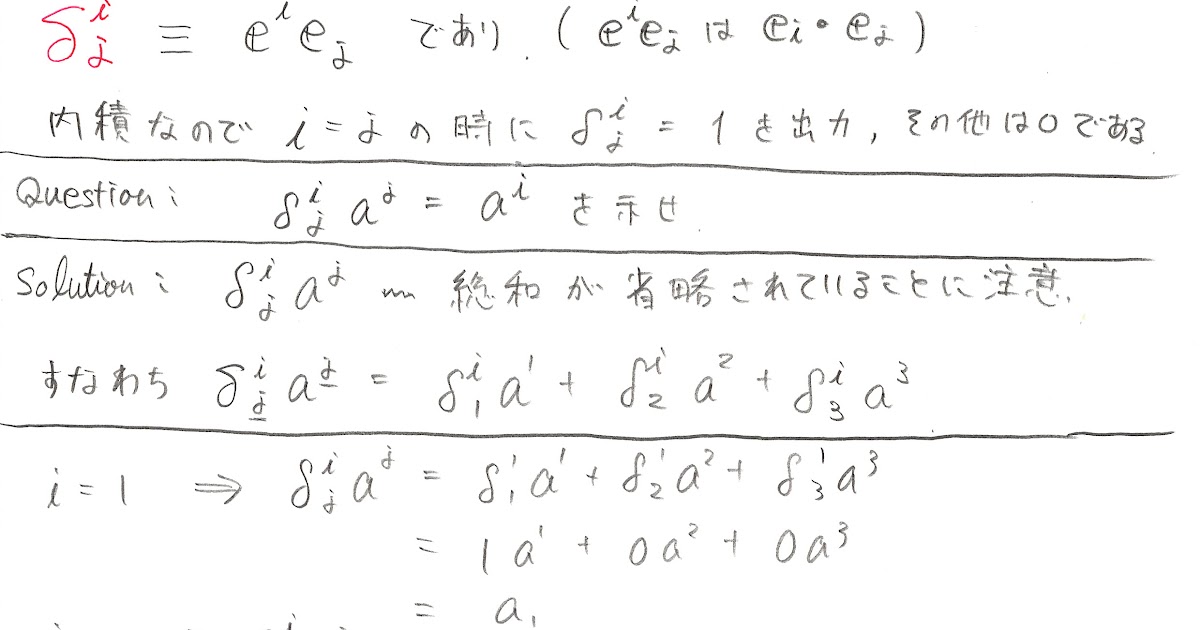 δ^i_j ≡ e^i e_j であり. ( e^i e_j は e_i • e_j )
内積なので i = j の時に δ^i_j = 1 を出力, その他は0である.
Question : δ^i_j a^j = a^i を示せ
Solution : δ^i_j a^j 〰 総和が省略されていることに注意.
すなわち δ^i_j a^j = δ^i_1 a^1 + δ^i_2 a^2 + δ^i_3 a^3
i = 1 ⇒ δ^i_j a^j = δ^1_1 a^1 + δ^1_2 a^2 + δ^1_3 a^3
= 1 a^1 + 0 a^2 + 0 a^3
= a_1